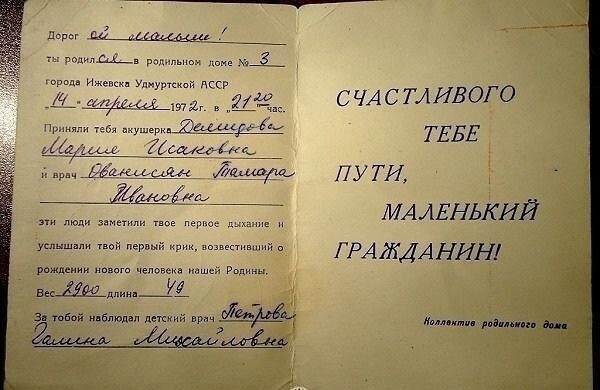 Дорогой малыш!
ты родился в родильном доме № 3
города Ижевска Удмуртской АССР
"14" апреля 1972 г. в "21 20" час.
Приняли тебя акушерка Демидова
Мария Исаковна
и врач Ованисян Тамара
Ивановна
эти люди заметили твое первое дыхание и
услышали твой первый крик, возвестивший о
рождении нового человека нашей Родины.
Вес 2900 длина 49
За тобой наблюдал детский врач Петрова
Галина Михайловна
СЧАСТЛИВОГО
ТЕБЕ
ПУТИ,
МАЛЕНЬКИЙ
ГРАЖДАНИН!
Коллектив родильного дома